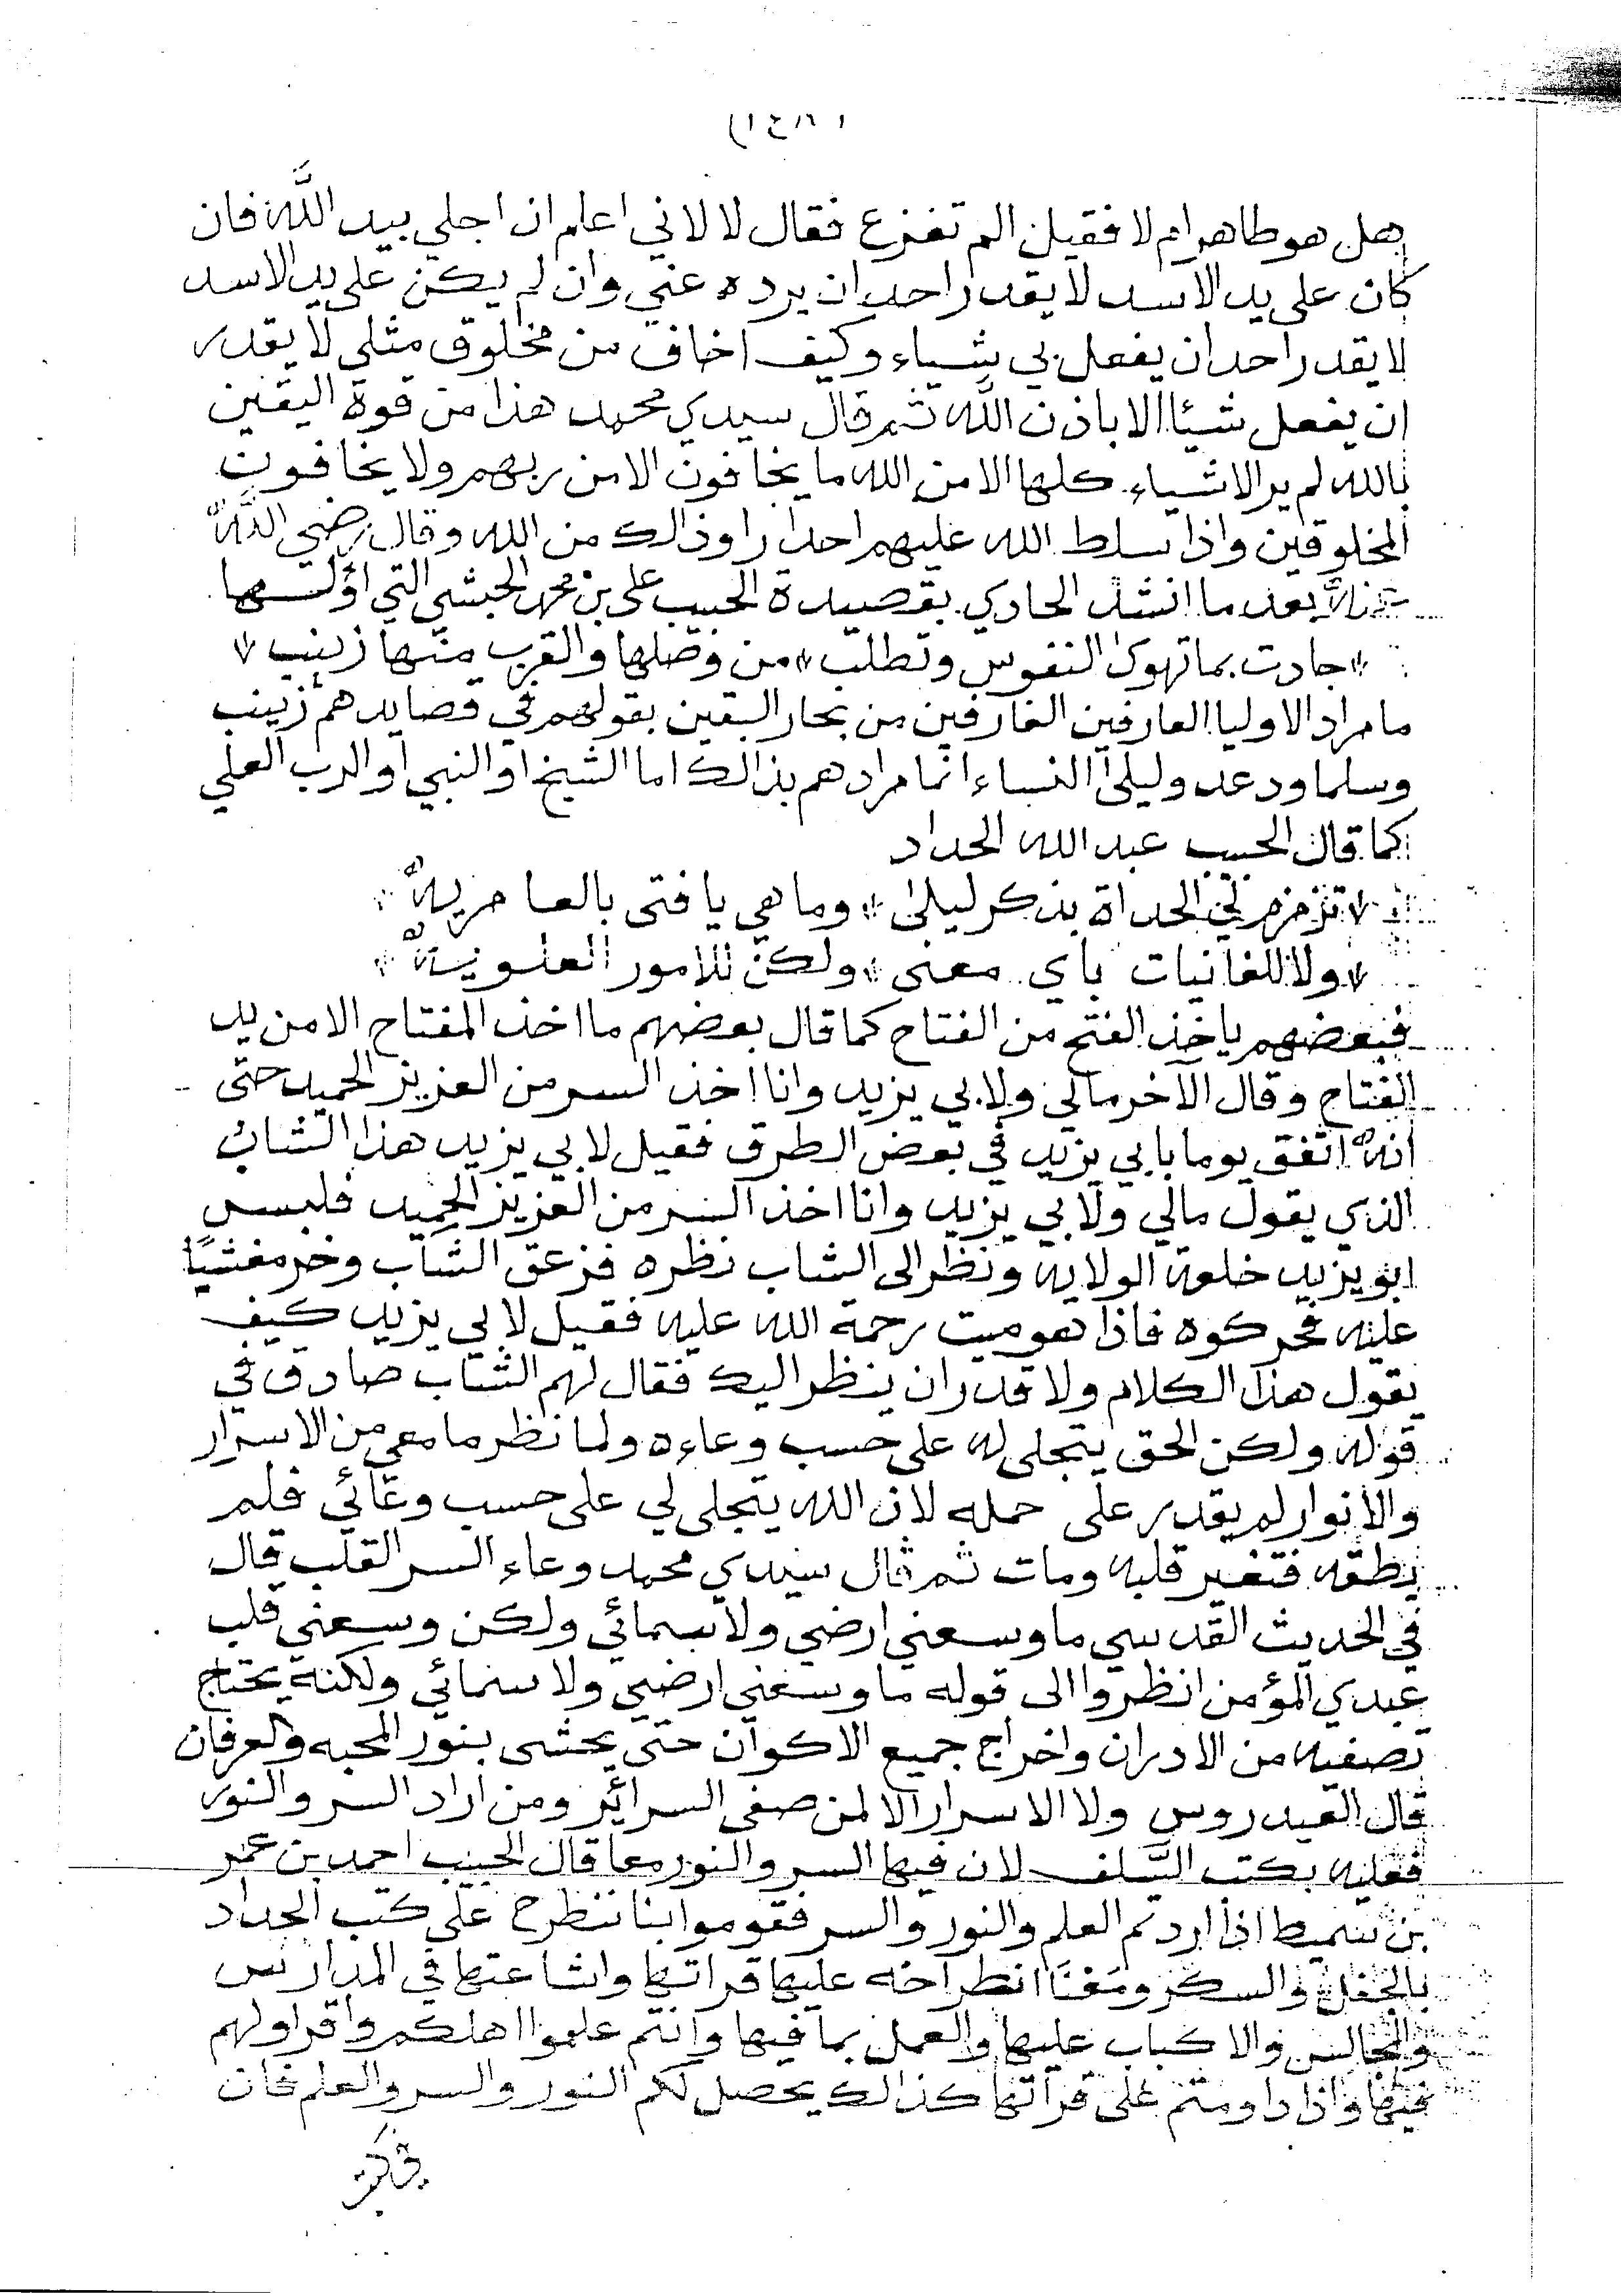 (١٤٨)
هل هو طاهر ام لا فقيل الم تفزع فقال لا لاني اعلم ان اجلي بيد اللَّه فان
كان على يد الاسد لا يقدر احد ان يرده عني وان لم يكن على يد الاسد
لا يقدر احد ان يفعل بي شياء وكيف اخاف من مخلوق مثلي لا يقدر
ان يفعل شيئا الا باذن اللَّه ثم قال سيدي محمد هذا من قوة اليقين
بالله لم ير الاشياء كلها الا من الله ما يخافون الا من ربهم ولا يخافون
المخلوقين واذا سلط الله عليهم احدا راوا ذالك من الله وقال رضي اللَّه
عنه بعد ما انشد الحادي بقصيدة الحبيب علي بن محمد الحبشي التي اولها
جادت بما تهوى النفوس وتطلب * من وصلها والقرب منها زينب *
ما مراد الاوليا العارفين الغارفين من بحار اليقين بقولهم في قصايدهم زينب
وسلما ودعد وليلى النساء انما مرادهم بذالك اما الشيخ او النبي او الرب العلي
كما قال الحبيب عبد الله الحداد
* تزمزم لي الحداة بذكر ليلى * وما هي يا فتى بالعامريه *
* ولا للغانيات باي معنى * ولكن للامور العلويه *
فبعضهم ياخذ الفتح من الفتاح كما قال بعضهم ما اخذ المفتاح الا من يد
الفتاح وقال الاخر مالي ولابي يزيد وانا اخذ السر من العزيز الحميد حتى
انه اتفق يوما بابي يزيد في بعض الطرق فقيل لابي يزيد هذا الشاب
الذي يقول مالي ولابي يزيد وانا اخذ السر من العزيز الحميد فلبس
ابو يزيد خلعة الولايه ونظر الى الشاب نظره فزعق الشاب وخر مغشيًا
عليه فحركوه فاذا هو ميت رحمة الله عليه فقيل لابي يزيد كيف
يقول هذا الكلام ولا قدر ان ينظر اليك فقال لهم الشاب صادق في
قوله ولكن الحق يتجلى له على حسب وعاءه ولما نظر ما معي من الاسرار
والانوار لم يقدر على حمله لان الله يتجلى لي على حسب وعائي فلم
يطقه فتغير قلبه ومات ثم قال سيدي محمد وعاء السر القلب قال
في الحديث القدسي ما وسعني ارضي ولا سمائي ولكن وسعني قلب
عبدي المؤمن انظروا الى قوله ما وسعني ارضي ولا سمائي ولكنه يحتاج
تصفيه من الادران واخراج جميع الاكوان حتى يحشى بنور المحبه والعرفان
قال العيدروس ولا الاسرار الا لمن صفى السرائر ومن اراد السر والنور
فعليه بكتب السَّلف لان فيها السر والنور معا قال الحبيب احمد بن عمر
بن سميط اذا اردتم العلم والنور والسر فقوموا بنا ننطرح على كتب الحداد
بالجفل والسكر ومعنا انطراحه عليها قراتها واشاعتها في المدارس
والمجالس والاكباب عليها والعمل بما فيها وانتم علموا اهلكم واقراو لهم
فيها واذا داومتم على قراتها كذالك يحصل لكم النور والسر والعلم فان